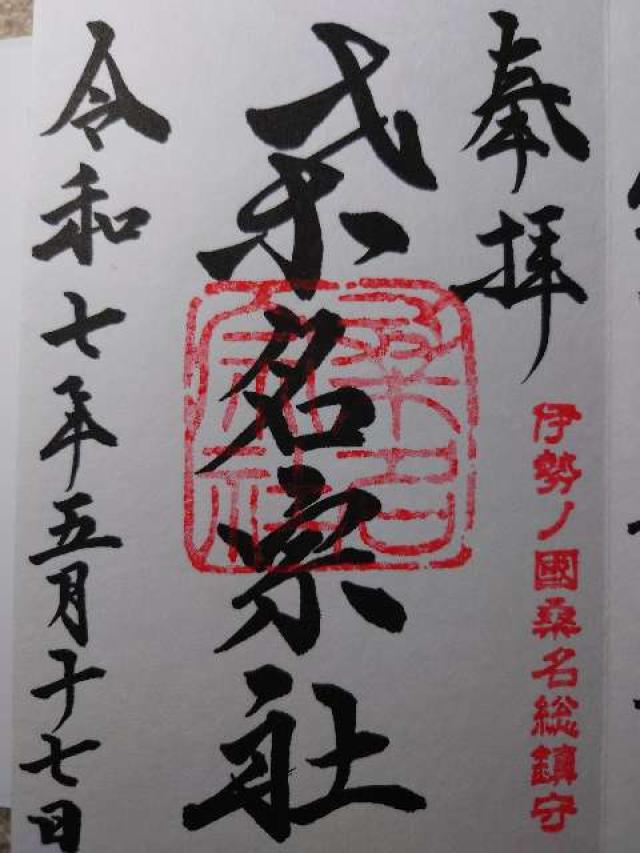 奉拝
伊勢ノ國桑名総鎮守
桑名宗社
桑名宗社
令和七年五月十七日